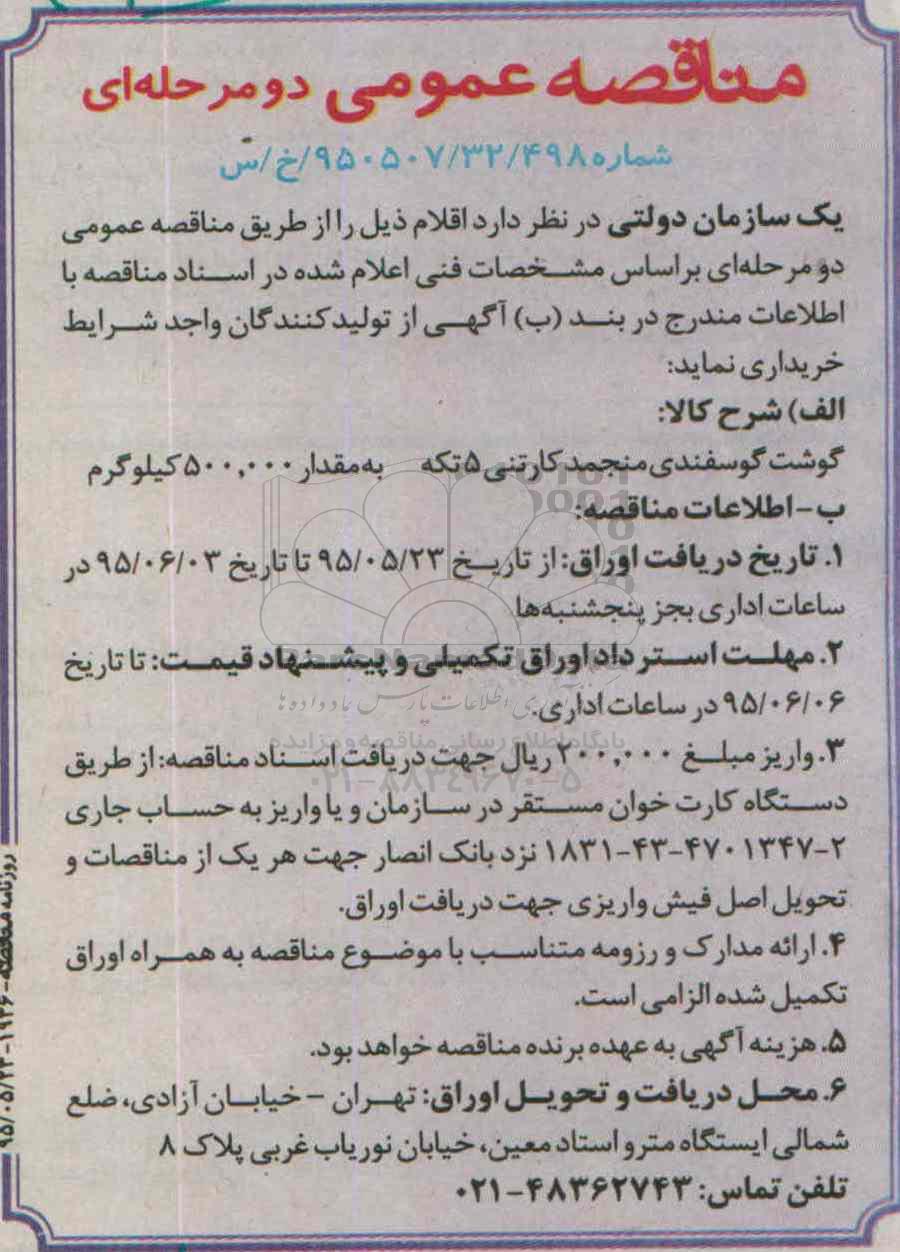 مناقصه عمومی دو مرحله‌ای
شماره ۹۵۰۵۰۷/۳۲/۴۹۸/خ/س
یک سازمان دولتی در نظر دارد اقلام ذیل را از طریق مناقصه عمومی
دو مرحله‌ای براساس مشخصات فنی اعلام شده در اسناد مناقصه با
اطلاعات مندرج در بند (ب) آگهی از تولیدکنندگان واجد شرایط
خریداری نماید:
الف) شرح کالا:
گوشت گوسفندی منجمد کارتنی ۵ تکه به‌مقدار ۵۰۰,۰۰۰ کیلوگرم
ب-اطلاعات مناقصه:
۱. تاریخ دریافت اوراق: از تاریخ ۹۵/۰۵/۲۳ تا تاریخ ۹۵/۰۶/۰۳ در
ساعات اداری بجز پنجشنبه‌ها
۲. مهلت استرداد اوراق تکمیلی و پیشنهاد قیمت: تا تاریخ
۹۵/۰۶/۰۶ در ساعات اداری.
۳. واریز مبلغ ۲۰۰,۰۰۰ ریال جهت دریافت اسناد مناقصه: از طریق
دستگاه کارت خوان مستقر در سازمان و یا واریز به حساب جاری
۱۸۳۱-۴۳-۴۷۰۱۳۴۷-۲ نزد بانک انصار جهت هر یک از مناقصات و
تحویل اصل فیش واریزی جهت دریافت اوراق.
۴. ارائه مدارک و رزومه متناسب با موضوع مناقصه به همراه اوراق
تکمیل شده الزامی است.
۵. هزینه آگهی به عهده برنده مناقصه خواهد بود.
۶. محل دریافت و تحویل اوراق: تهران - خیابان آزادی، ضلع
شمالی ایستگاه مترو استاد معین، خیابان نوریاب غربی پلاک ۸
تلفن تماس: ۴۸۳۶۲۷۴۳-۰۲۱
روزنامه مناقصه-۱۹۳۶-۹۵/۰۵/۲۳
پایگاه اطلاع رسانی مناقصه و مزایده
۰۲۱-۸۸۳۴۹۶۷۰-۵